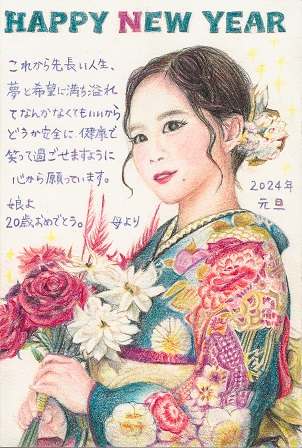 HAPPY NEW YEAR
これから先長い人生、
夢と希望に満ち溢れ
てなんかなくてもいいから
どうか安全に健康で
笑って過ごせますように
心から願っています。
娘よ
20歳おめでとう。 母より
2024年
元旦